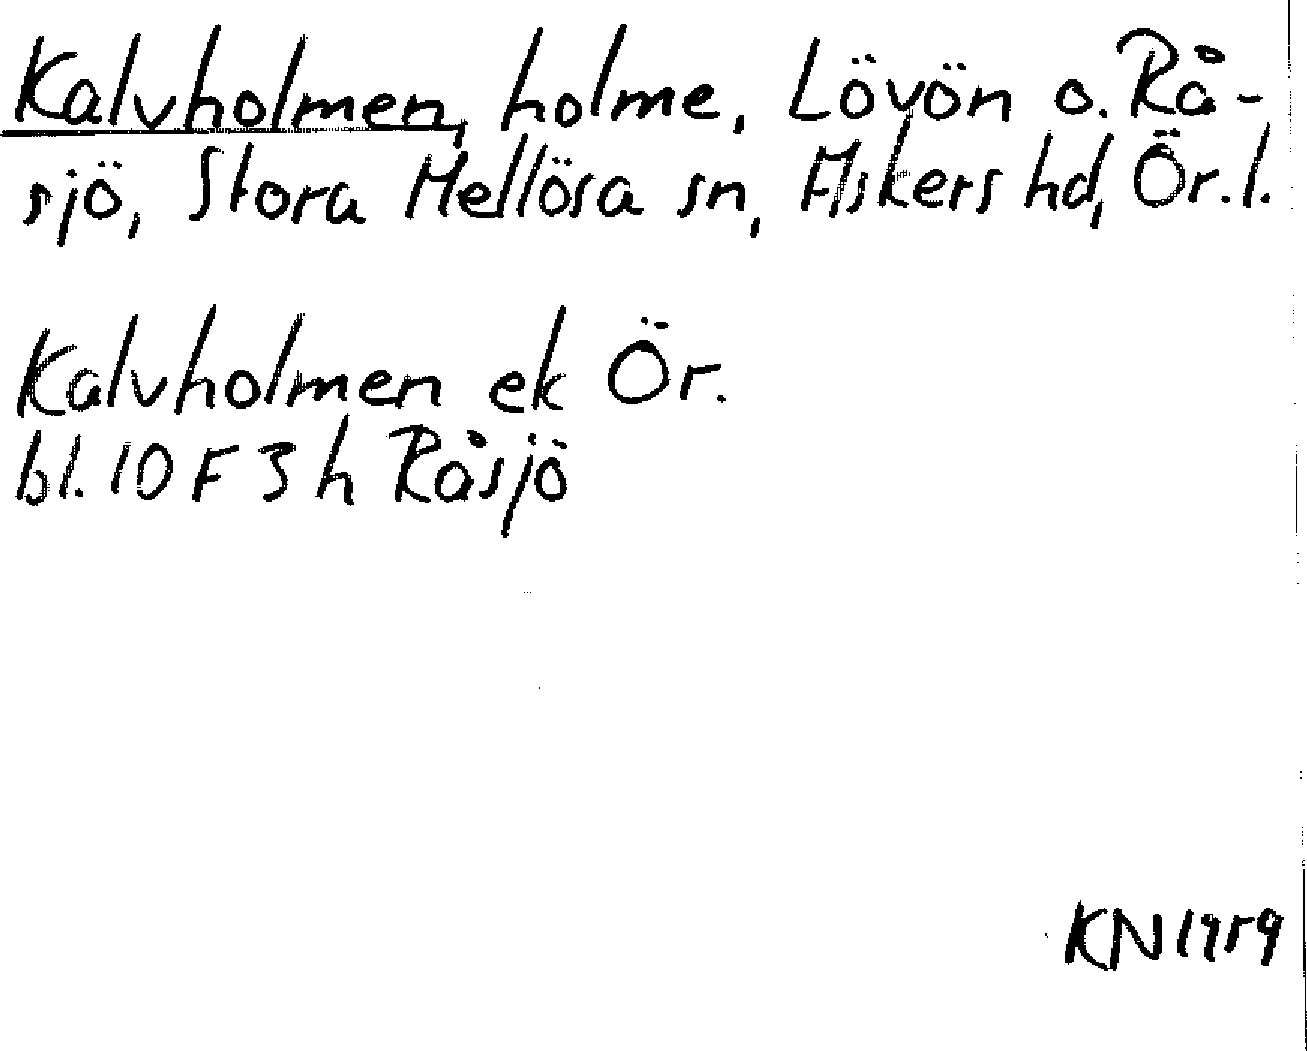 Kalvholmen, holme, Lövön o. Rå-
sjö, Stora Mellösa sn, Askers hd, Ör. l.
Kalvholmen ek Ör.
bl. 10 F 3 h Råsjö
KN 1959